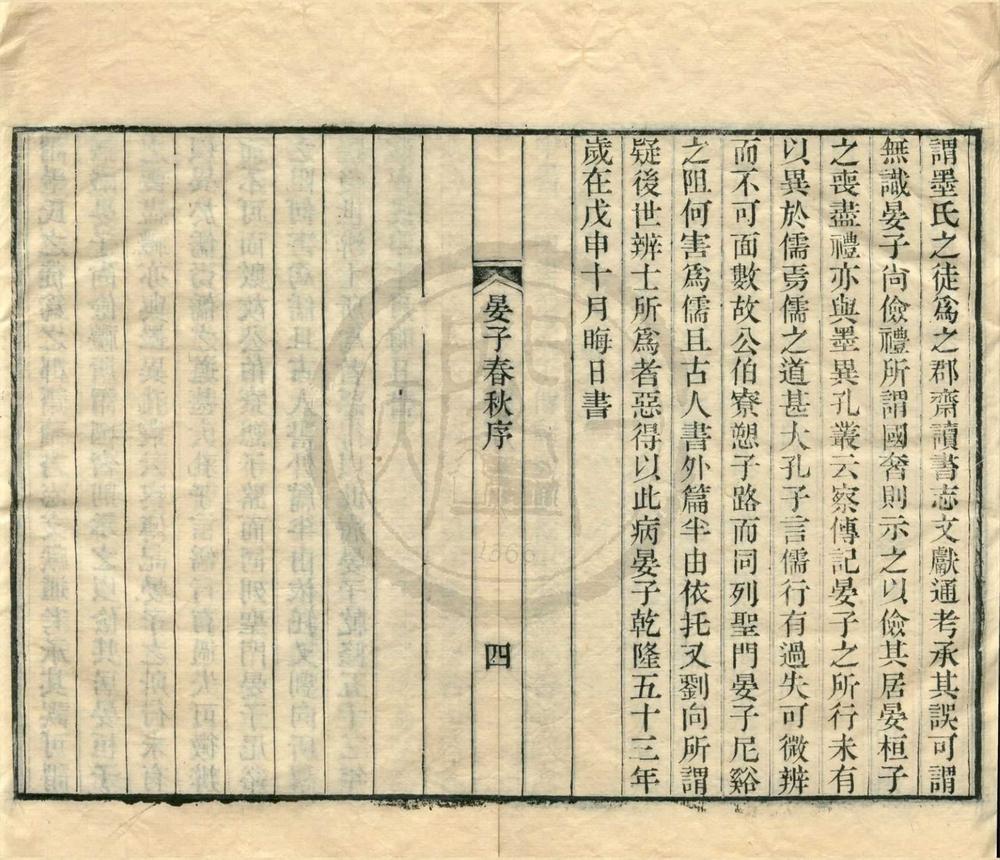 謂墨氏之徒爲之郡齋讀書志文獻通考承其誤可謂
無識晏子尚儉禮所謂國奢則示之以儉其居晏桓子
之喪盡禮亦與墨異孔叢云察傳記晏子之所行未有
以異於儒焉儒之道甚大孔子言儒行有過失可微辨
而不可面數故公伯寮愬子路而同列聖門晏子尼谿
之阻何害爲儒且古人書外篇半由依托又劉向所謂
疑後世辨士所爲者惡得以此病晏子乾隆五十三年
歲在戊申十月晦日書
晏子春秋序
四